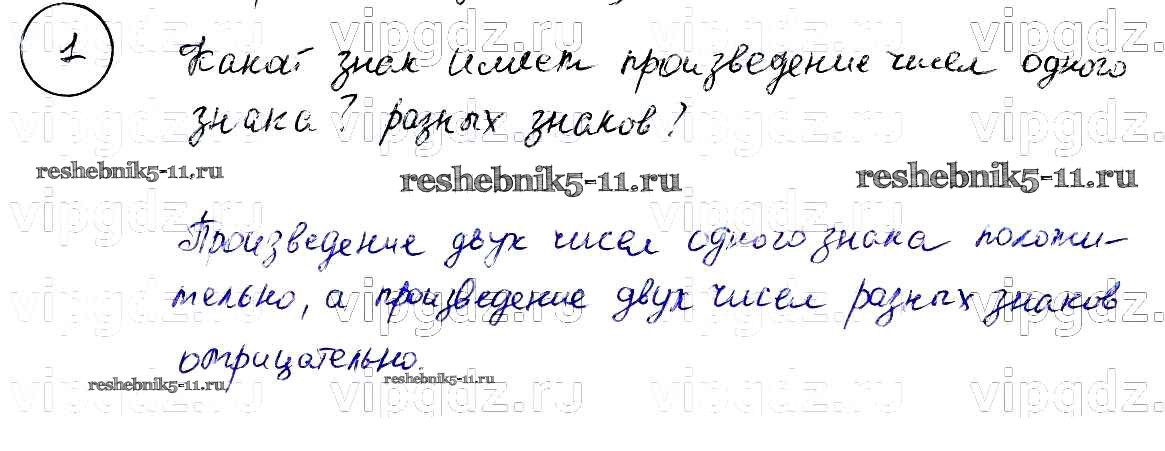 1 Какой знак имеет произведение чисел одного
знака? разных знаков?
reshebnik5-11.ru reshebnik5-11.ru reshebnik5-11.ru
Произведение двух чисел одного знака положи-
тельно, а произведение двух чисел разных знаков
отрицательно.
reshebnik5-11.ru reshebnik5-11.ru
vipgdz.ru vipgdz.ru vipgdz.ru vipgdz.